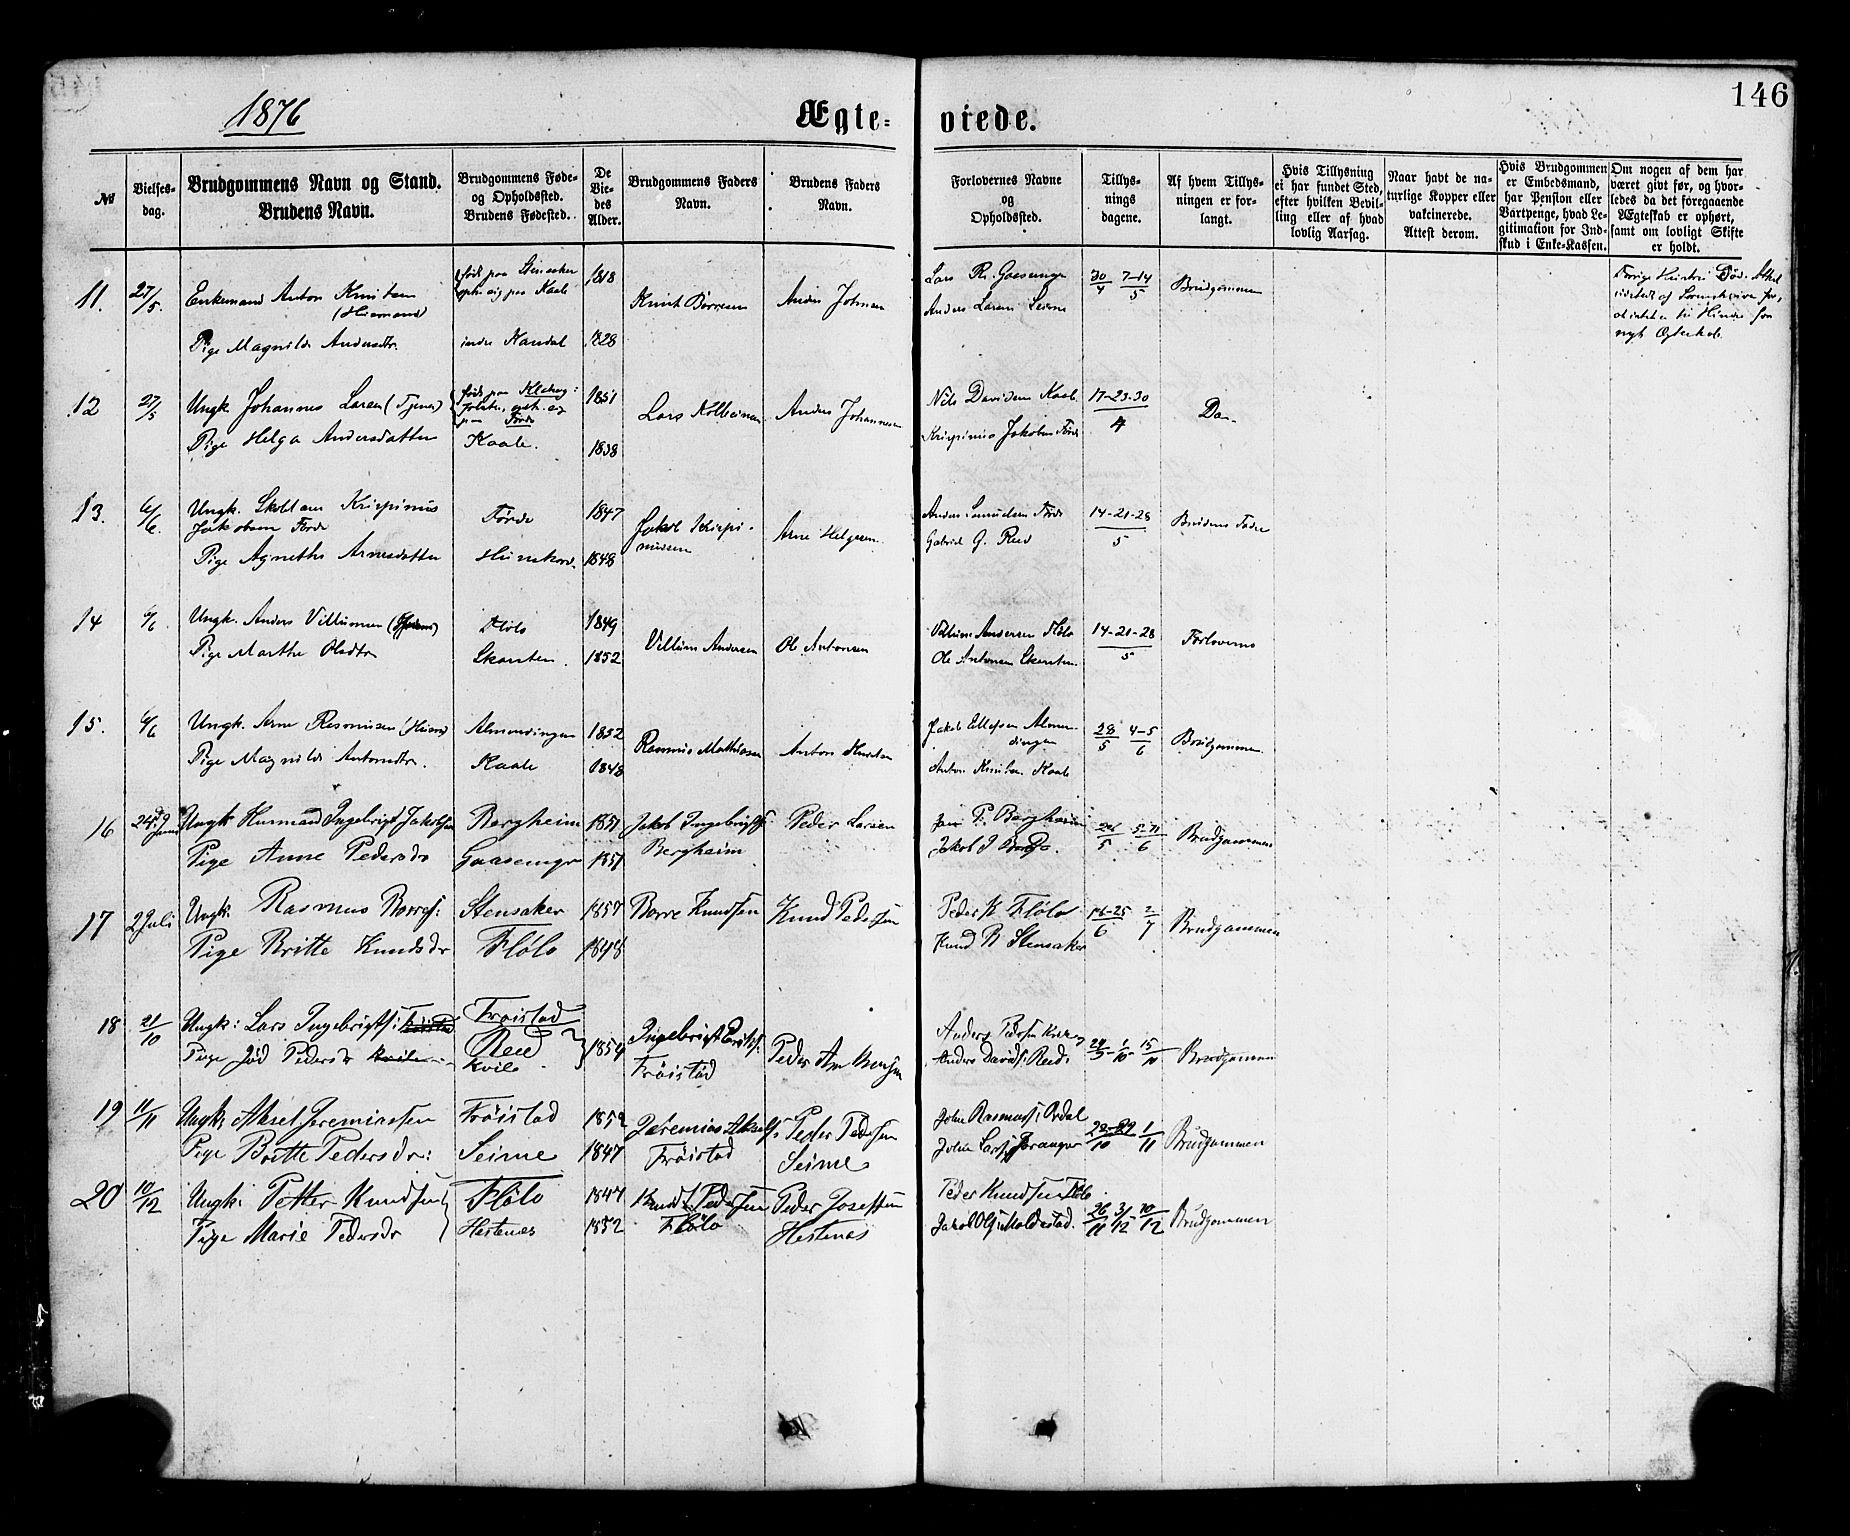 146
1876
Ægteviede.
№
Vielses-
dag.
Brudgommens Navn og Stand.
Brudens Navn.
Brudgommens Føde-
og Opholdssted.
Brudens Fødested.
De
Vie-
des
Alder.
Brudgommens Faders
Navn.
Brudens Faders
Navn.
Forlovernes Navne
og
Opholdssted.
Tillys-
nings
dagene.
Af hvem Tillys-
ningen er for-
langt.
Hvis Tillysning
ei har fundet Sted,
efter hvilken Bevil-
ling eller af hvad
lovlig Aarsag.
Naar havt de na-
turlige Kopper eller
vakcinerede.
Attest derom.
Hvis Brudgommen
er Embedsmand,
har Pension eller
Vartpenge, hvad Le-
gitimation for Ind-
skud i Enke-Kassen.
Om nogen af dem har
været gift før, og hvor-
ledes da det foregaaende
Ægteskab er ophørt,
samt om lovligt Skifte
er holdt.
11.
27/5.
Enkemand Anton Knutsen
(Huusmand)
Pige Magnilde Andersdtr.
født paa Stensaker
opho. sig paa Kaale
indre Kandal
1818
1828
Knut Børresen
Anders Johnsen
Lars R. Gaasemyr
Anders Larsen Seime
30/4 7-14/5
Brudgommen
12
27/5
Ungk. Johannes Larsen (Tjener)
Pige Helga Andersdatter
født paa
Førde
Kaale.
1851
1838
Lars Kolbeinsen
Anders Johannesen
Nils Davidsen Kaale
Krispinus Jakobsen Førde
17-23-30/4
Do-
13.
6/6.
Ungk. Skollærer Krispinus
Jakobsen Førde
Pige Agnethe Arnesdatter
Førde
1847
1848
Jakob Krispi-
nussen
Arne Helgesen
Anders Samuelsen Førde
Gabriel G. Reed
14-21-28/5
Brudens Fader
14
6/6
Ungk. Anders Villumsen
Pige Marthe Olsdtr
Fløлo
Skaasten.
1849
1852
Villum Andersen
Ole Antonsen
Villum Andersen Fløло
Ole Antonsen Skaasten.
14-21-28/5
Forloverne
15.
6/6
Ungk. Arne Rasmusen (Huusm)
Pige Magnilde Antonsdtr.
Almenningen
Kaale
1852
1848
Rasmus Mathiasen
Anton Knutsen
Jakob Ellefsen Almen-
dingen
Anton Knutsen Kaale
28/5 4-5/6
Brudgommen
16
24de Juni
Ungk. Huusmand Ingebrigt Jakobsen
Pige Anne Pedersdr
Bergheim
Gaasemyr
1851
1851
Jakob Ingebrigts.
Bergheim
Peder Larsen
Jens P. Bergheim
Jakob I
28/5 5-11/6
Brudgommen
17
2 Juli
Ungk. Rasmus Børres:
Pige Britte Knudsdr
Stensaker
Fløло
1857
1848
Børre Knudsen
Knud Pedersen
Peder K Fløло
Knud B Stensaker
18-25/6 2/7
Brudgommen
18
21/10
Ungk: Lars Ingebrigts:
Pige Jød Pedersdr
Frøistad
Reed
Kvile
1854
Frøistad
Peder Am
Anders Pedersen
Anders Davids: Reed
24/9 - 1/10 - 15/10
Brudgommen
19
11/11
Ungk: Aksel Jeremiassen
Pige Britte Pedersdr:
Frøistad
Seime
1852
1847
Jeremias Aksels:
Frøistad
Peder Pedersen
Seime
John Rasmuss: Ordal
John Larss:
22-29/10 1/11
Brudgommen
20
10/12
Ungk: Petter Knudsen
Pige Marie Pedersdr
Fløло
Hestenes
1847
1852
Knud Pedersen
Fløло
Peder Josefsen
Hestenes
Peder Knudsen Fløло
Jakob Ols: Moldestad.
26/11 3/12 10/12
Brudgommen